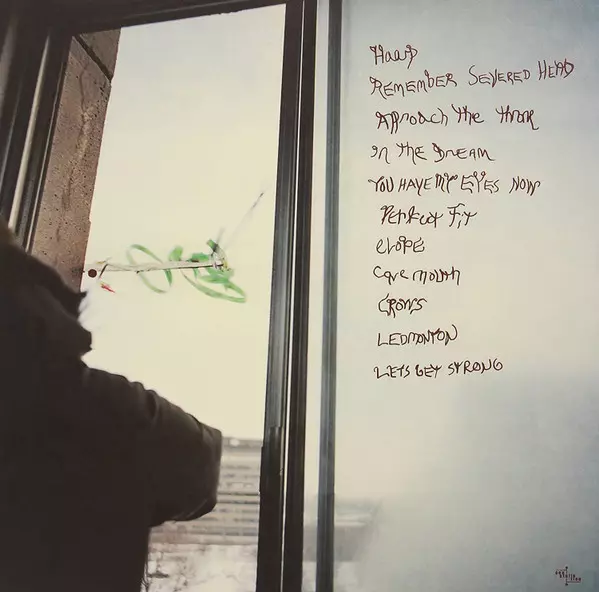 Haarp
REMEMBER SEVERED HEAD
Approach the Throne
In THE DREAM
YOU HAVE MY EYES NOW
Perfect Fit
elope
Cave mouth
CROWS
LEDMONTON
LETS GET STRONG